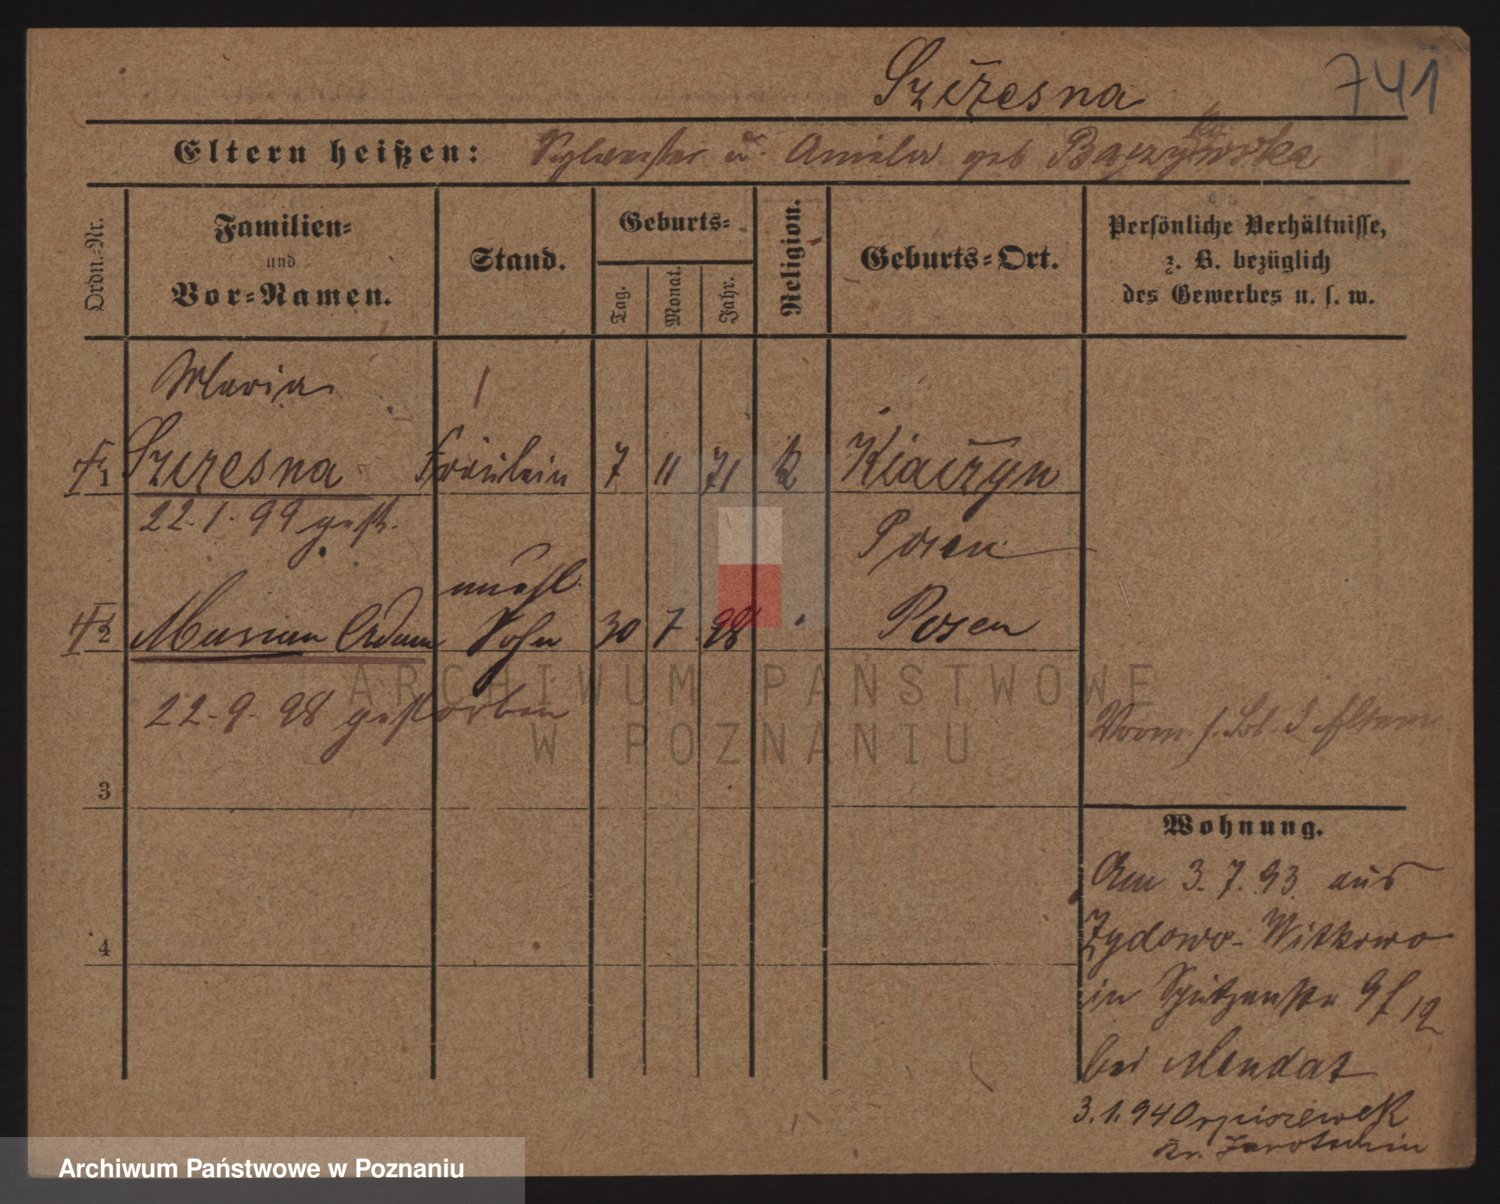 Szczesna 741
Eltern heißen: Sylvester u. Amalie geb Baczykowska
Ordn.-Nr.
Familien-
und
Vor-Namen.
Stand.
Geburts-
Tag.
Monat.
Jahr.
Religion.
Geburts-Ort.
Persönliche Verhältnisse,
z. B. bezüglich
des Gewerbes u. s. w.
Maria
1 Szczesna Fräulein 7 11 71 k Kiączyn
22.1.99 gest. Posen
unehl.
2 Marian Adam Sohn 30 7 98 Posen
22-9-98 gestorben
3
4
Vorm. s. Bl. d. Eltern
Wohnung.
Am 3.7.93 aus
Zydowo-Witkowo
in Schützenstr 9/12
bei Mendat
3.1.94 Orpiszewek
Kr. Jarotschin
ARCHIWUM PAŃSTWOWE
W POZNANIU
Archiwum Państwowe w Poznaniu